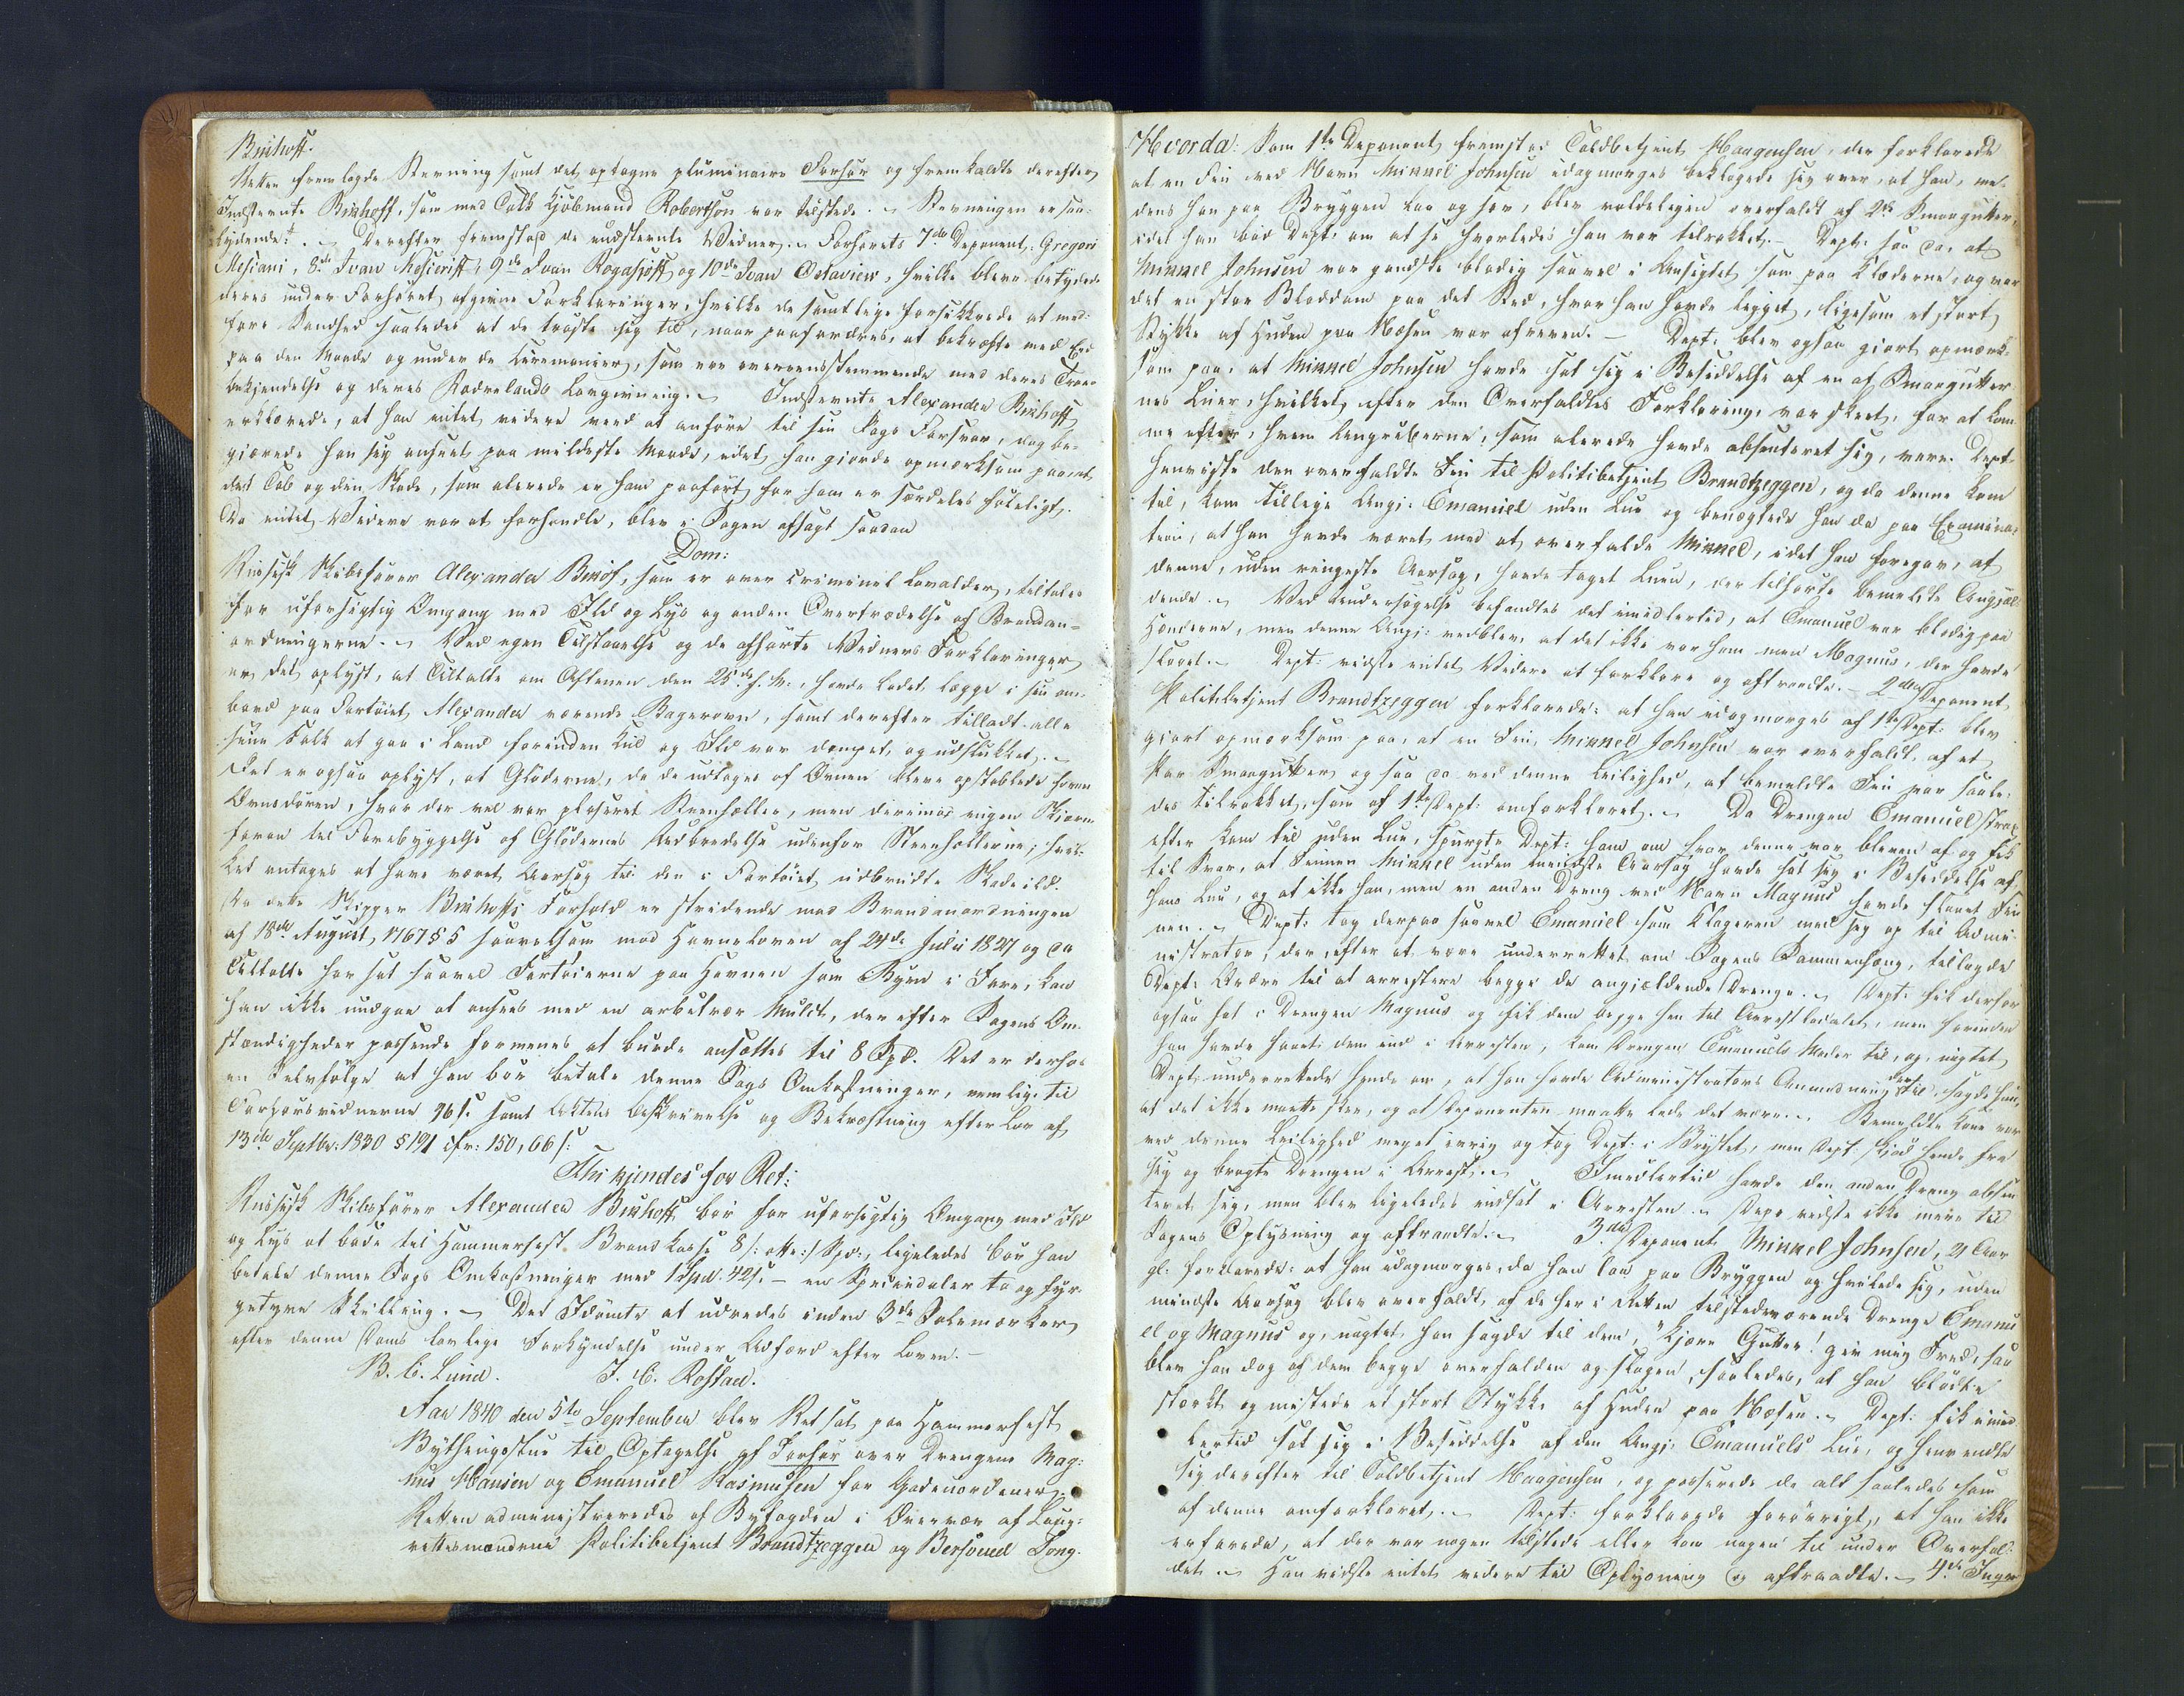 Binhoff.
Retten fremlagde Stevning samt det optagne pluminaire Forhør og fremkaldte derefter
Indstevnte Binhoff, som med Tolk Kjøbmand Robertson var tilstede. Stevningen er saa-
lydende: . Derefter fremstod de indstevnte Vidner. Forhørets 7de Deponent: Gregori
Mesiani, 8de Ivan 9de Ivan Rogasjoff og 10de Ivan Octaview, hvilke bleve betydede
deres under Forhøret afgivne Forklaringer, hvilke de samtlige forsikkrede at med-
føre Sandhed saaledes at de trøste sig til, naar paafordres, at bekræfte med Eed
paa den Maade og under de Ceremonier, som var overensstemmende med deres Troes
bekjendelse og deres Fædrelands Lovgivning. Indstevnte Alexander Binhoff
erklærede, at han intet videre veed at anføre til sin Sags Forsvar, dog be-
gjærede han sig anseet paa mildeste Maade, idet han gjorde opmærksom paa at
det Tab og den Skade, som allerede er ham paaført for ham er særdeles føleligt.
Da intet Videre var at forhandle, blev i Sagen afsagt saadan
Dom:
Russisk Skibsfører Alexander Binhof, som er over criminel Lavalder, tiltales
for uforsigtig Omgang med Ild og Lys og anden Overtrædelse af Brandan-
ordningerne. Ved egen Tilstaaelse og de afhørte Vidners Forklaringer
er det oplyst, at Tiltalte om Aftenen den 25de f. M., havde ladet lægge i sin om-
bord paa Fartøiet Alexander værende Bagerovn, samt derefter tilladt alle
sine Folk at gaa i Land forinden Kul og Ild var dæmpet og udslukket.
Det er ogsaa oplyst, at Gløderne, da de udtoges af Ovnen bleve opstablede foran
Ovnsdøren, hvor der vel var placeret Steenheller, men derimod ingen Skjærm
foran til Forebyggelse af Glødernes Udbredelse udenfor Steenhellerne; hvil-
ket antages at have været Aarsag til den i Fartøiet udbrudte Skadeild.
Da dette Skipper Binhoffs Forhold er stridende mod Brandanordningen
af 18de August 1767 § 5 saavelsom mod Havneloven af 24de Julii 1827 og da
Tiltalte har sat saavel Fartøierne paa Havnen som Byen i Fare, kan
han ikke undgaae at ansees med en arbitrær Mulct, der efter Sagens Om-
stændigheder passende formenes at burde ansættes til 8 Spd. Det er derhos
en Selvfølge at han bør betale denne Sags Omkostninger, nemlig til
Forhørsvidnerne 96 s. samt Aktens Beskrivelse og Bekræftning efter Lov af
13de Septbr: 1830 § 191 cfr: 150, 66 s:
Thi kjendes for Ret:
Russisk Skibsfører Alexander Binhoff bør for uforsigtig Omgang med Ild
og Lys at bøde til Hammerfest Brandkasse 8 /: otte :/ Spd:, ligeledes bør han
betale denne Sags Omkostninger med 1 Spd. 42 s. – en Speciedaler to og fyr-
getyve Skilling. – Det Idømte at udredes inden 3de Solemærker
efter denne Doms lovlige Forkyndelse under Adfærd efter Loven. –
B. C. Lund. J. C. Rostad.
Aar 1840 den 5te September blev Ret sat paa Hammerfest
Bythingsstue til Optagelse af Forhør over Drengene Mag-
nus Hansen og Emanuel Rasmusen for Gadeuordener.
Retten administreredes af Byfogden i Overvær af Laug-
rettesmændene Politibetjent Brandtzeggen og Bersvend Tong-
Hvorda: Som 1te Deponent fremstod Toldbetjent Haagensen, der forklarede
at en Fin ved Navn Minnel Johnsen idagmorges beklagede sig over, at han, me-
dens han paa Bryggen laa og sov, blev voldeligen overfaldt af 2de Smaagutter,
idet han bød Dept: om at see hvorledes han var tilrakket. – Dept: saa da, at
Minnel Johnsen var gandske blodig saavel i Ansigtet som paa Klæderne, og var
det en stor Bloddam paa det Sted, hvor han havde ligget, ligesom et stort
Stykke af Huden paa Næsen var afreven. – Dept: blev ogsaa gjort opmærk-
som paa, at Minnel Johnsen havde sat sig i Besiddelse af en af Smaagutter-
nes Luer, hvilket, efter den Overfaldtes Forklaring, var skeet, for at kom-
me efter, hvem Angriberne, som allerede havde absenteret sig, vare. Dept:
henviste den overfaldte Fin til Politibetjent Brandtzeggen, og da denne kom
til, kom tillige Angj: Emanuel uden Lue og benægtede han da paa Examina-
tion, at han havde været med at overfalde Minnel, idet han foregav, at
denne, uden ringeste Aarsag, havde taget Luen, der tilhørte bemeldte Angjæl-
dende. Ved Undersøgelse befandtes det imidlertid, at Emanuel var blodig paa
Hænderne, men denne Angj: vedblev, at det ikke var ham men Magnus, der havde
slaaet. – Dept: vidste intet Videre at forklare og aftraadte. – 2den Deponent
Politibetjent Brandtzeggen forklarede: at han idagmorges af 1ste Dept: blev
gjort opmærksom paa, at en Fin, Minnel Johnsen var overfaldt af et
Par Smaagutter og saa da ved denne Leilighed, at bemeldte Fin var saale-
des tilrakket, som af 1ste Dept: omforklaret. Da Drengen Emanuel strax
efter kom til uden Lue, spurgte Dept: ham om hvor denne var bleven af og fik
til Svar, at Finnen Minnel uden mindste Aarsag havde sat sig i Besiddelse af
hans Lue, og at ikke han, men en anden Dreng ved Navn Magnus havde slaaet Fin-
nen. Dept: tog derpaa saavel Emanuel som Klageren med sig op til Admi-
nistrator, der, efter at være underrettet om Sagens Sammenhæng, tillagde
Dept: Ordre til at arrestere begge de angjældende Drenge. Dept: fik derfor
ogsaa fat i Drengen Magnus og fik dem begge hen til Arrestlocalet, men forinden
han havde faaet dem ind i Arresten, kom Drengen Emanuels Moder til, og, uagtet
Dept: underrettede hende om, at han havde Administrators Anmodning dertil, sagde hun,
at det ikke maatte skee, og at Deponenten maatte lade det være. Bemeldte Kone var
ved denne Leilighed meget ivrig og tog Dept: i Brystet, men Dept: skjød hende fra
sig og bragte Drengen i Arrest. Imidlertid havde den anden Dreng absen-
teret sig, men blev ligeledes indsat i Arresten. Dept: vidste ikke mere til
Sagens Oplysning og aftraadte. 3de Deponent Minnel Johnsen, 21 Aar
gl: forklarede: at han idagmorges, da han laa paa Bryggen og hvilede sig, uden
mindste Aarsag blev overfaldt af de her i Retten tilstedeværende Drenge Emanu-
el og Magnus og, uagtet han sagde til dem, "Kjære Gutter! giv mig Fred, saa
blev han dog af dem begge overfalden og slagen, saaledes, at han blødte
stærkt og mistede et stort Stykke af Huden paa Næsen. Dept: fik imid-
lertid sat sig i Besiddelse af den Angj: Emanuels Lue, og henvendte
sig derefter til Toldbetjent Haagensen, og passerede da alt saaledes som
af denne omforklaret. Dept: forklarede forøvrigt, at han ikke
erfarede, at der var nogen tilstede eller kom nogen til under Overfal-
det. Han vidste intet videre til Oplysning og aftraadte. – 4de